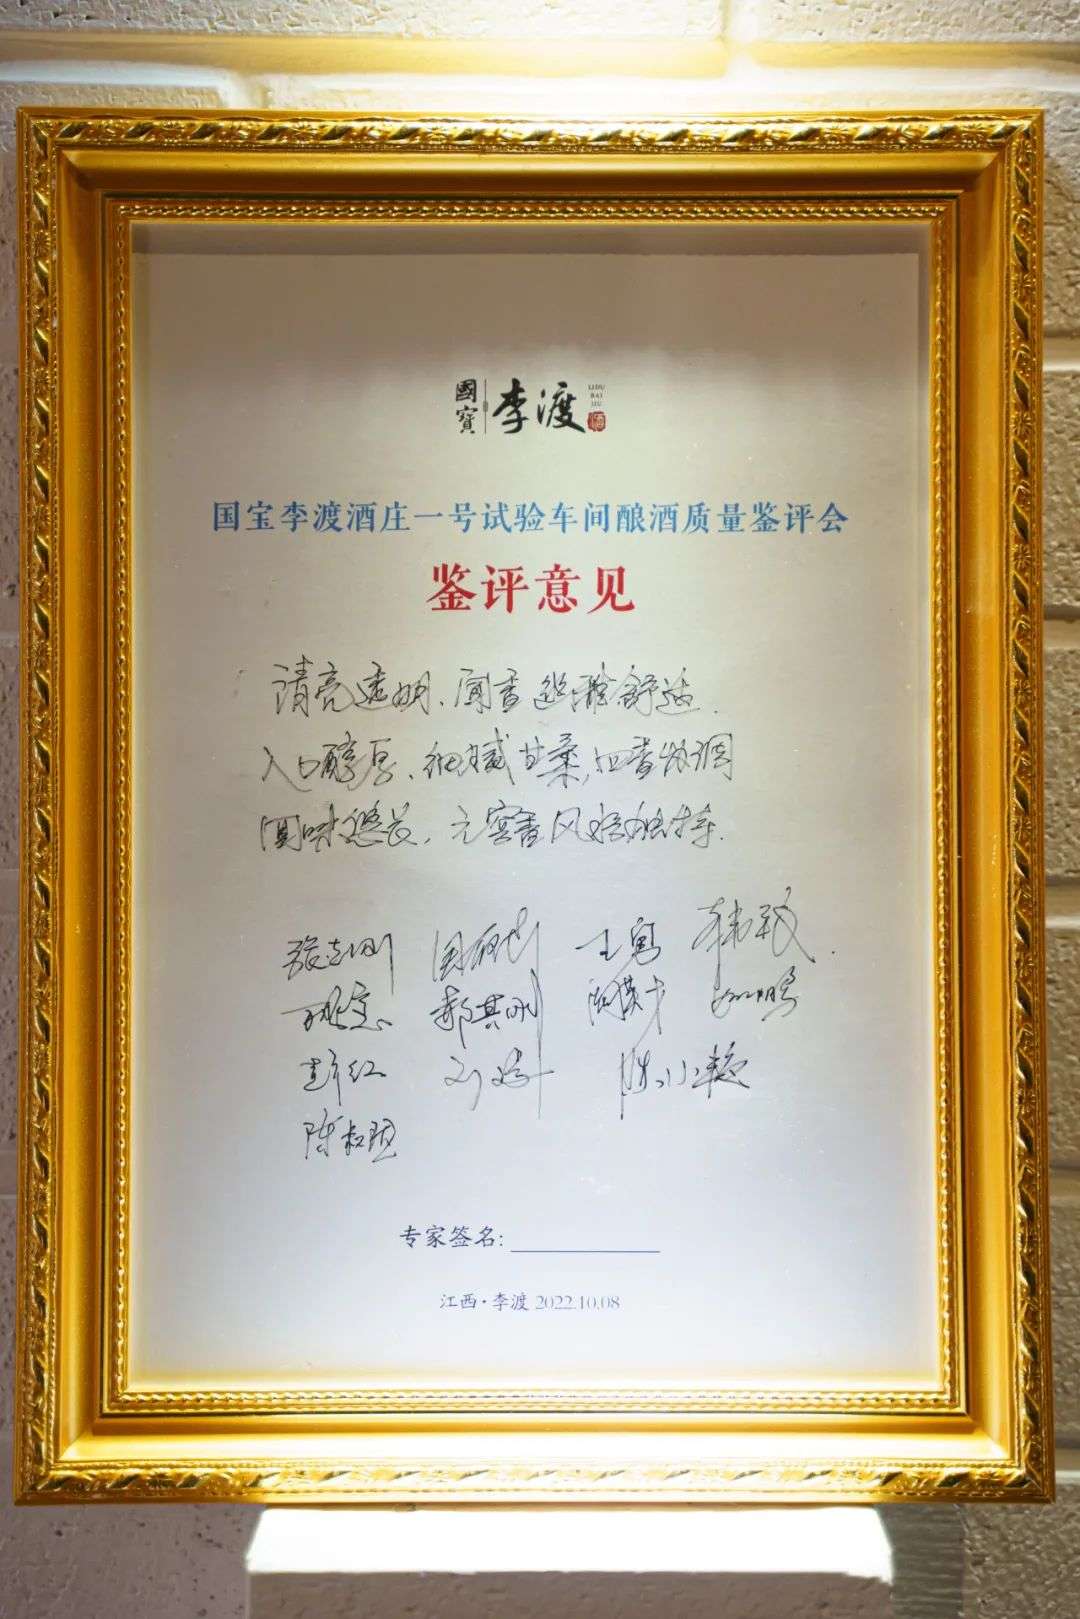 國寶 李渡 LIDU BAI JIU 酒
国宝李渡酒庄一号试验车间酿酒质量鉴评会
鉴评意见
清亮透明、闻香幽雅舒适.
入口醇厚、细腻甘柔,口香协调
回味悠长,元窖香风格独特.
张志刚 王勇 韩永
郝其刚
彭红 刘婷 陈小艳
陈
专家签名:
江西·李渡 2022.10.08